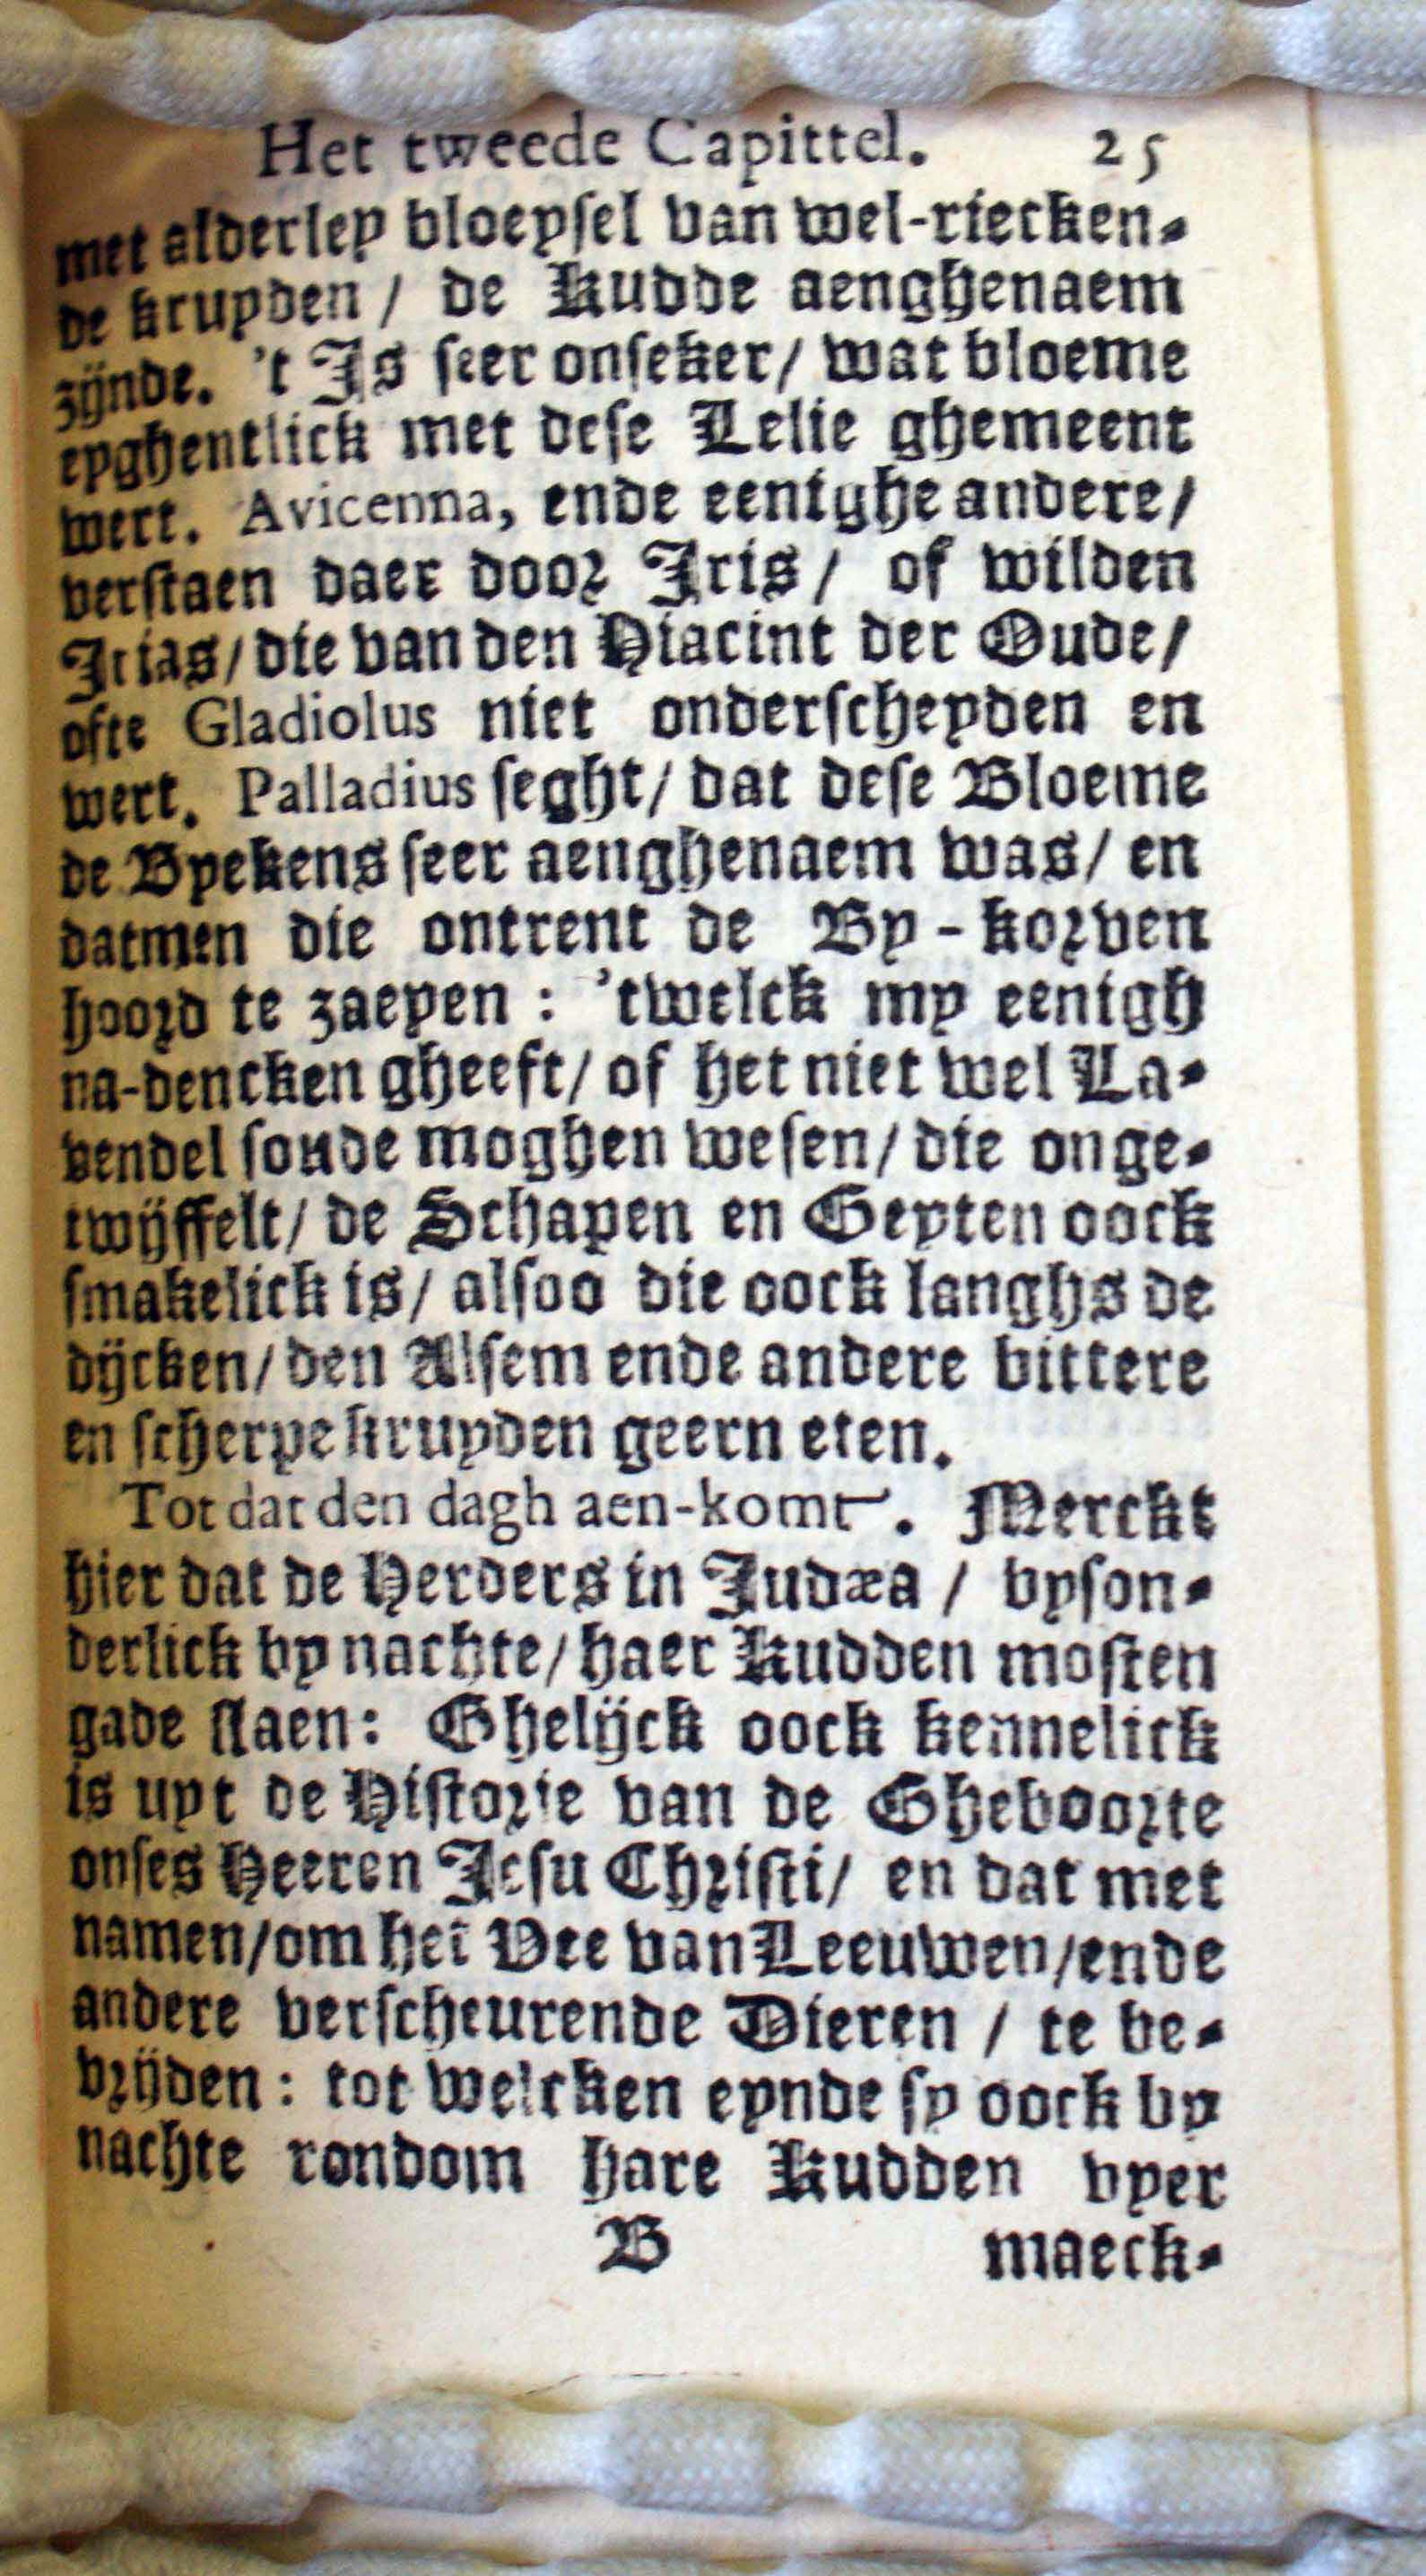 Het tweede Capittel. 25
met alderley bloeysel van wel-riecken-
de kruyden / de Kudde aenghenaem
zijnde. 't Is seer onseker / wat bloeme
eyghentlick met dese Lelie ghemeent
wert. Avicenna, ende eenighe andere /
verstaen daer door Iris / of wilden
Irias / die van den Hiacint der Oude /
ofte Gladiolus niet onderscheyden en
wert. Palladius seght / dat dese Bloeme
de Byekens seer aenghenaem was / en
datmen die ontrent de By-korven
hoord te zaeyen : 'twelck my eenigh
na-dencken gheeft / of het niet wel La-
vendel soude moghen wesen / die onge-
twijffelt / de Schapen en Geyten oock
smakelick is / alsoo die oock langhs de
dijcken / den Alsem ende andere bittere
en scherpe kruyden geern eten.
Tot dat den dagh aen-komt. Merckt
hier dat de Herders in Judæa / byson-
derlick by nachte / haer Kudden mosten
gade slaen: Ghelijck oock kennelick
is uyt de Historie van de Gheboorte
onses Heeren Jesu Christi / en dat met
namen / om het Vee van Leeuwen / ende
andere verscheurende Dieren / te be-
vrijden : tot welcken eynde sy oock by
nachte rondom hare Kudden vyer
B maeck-